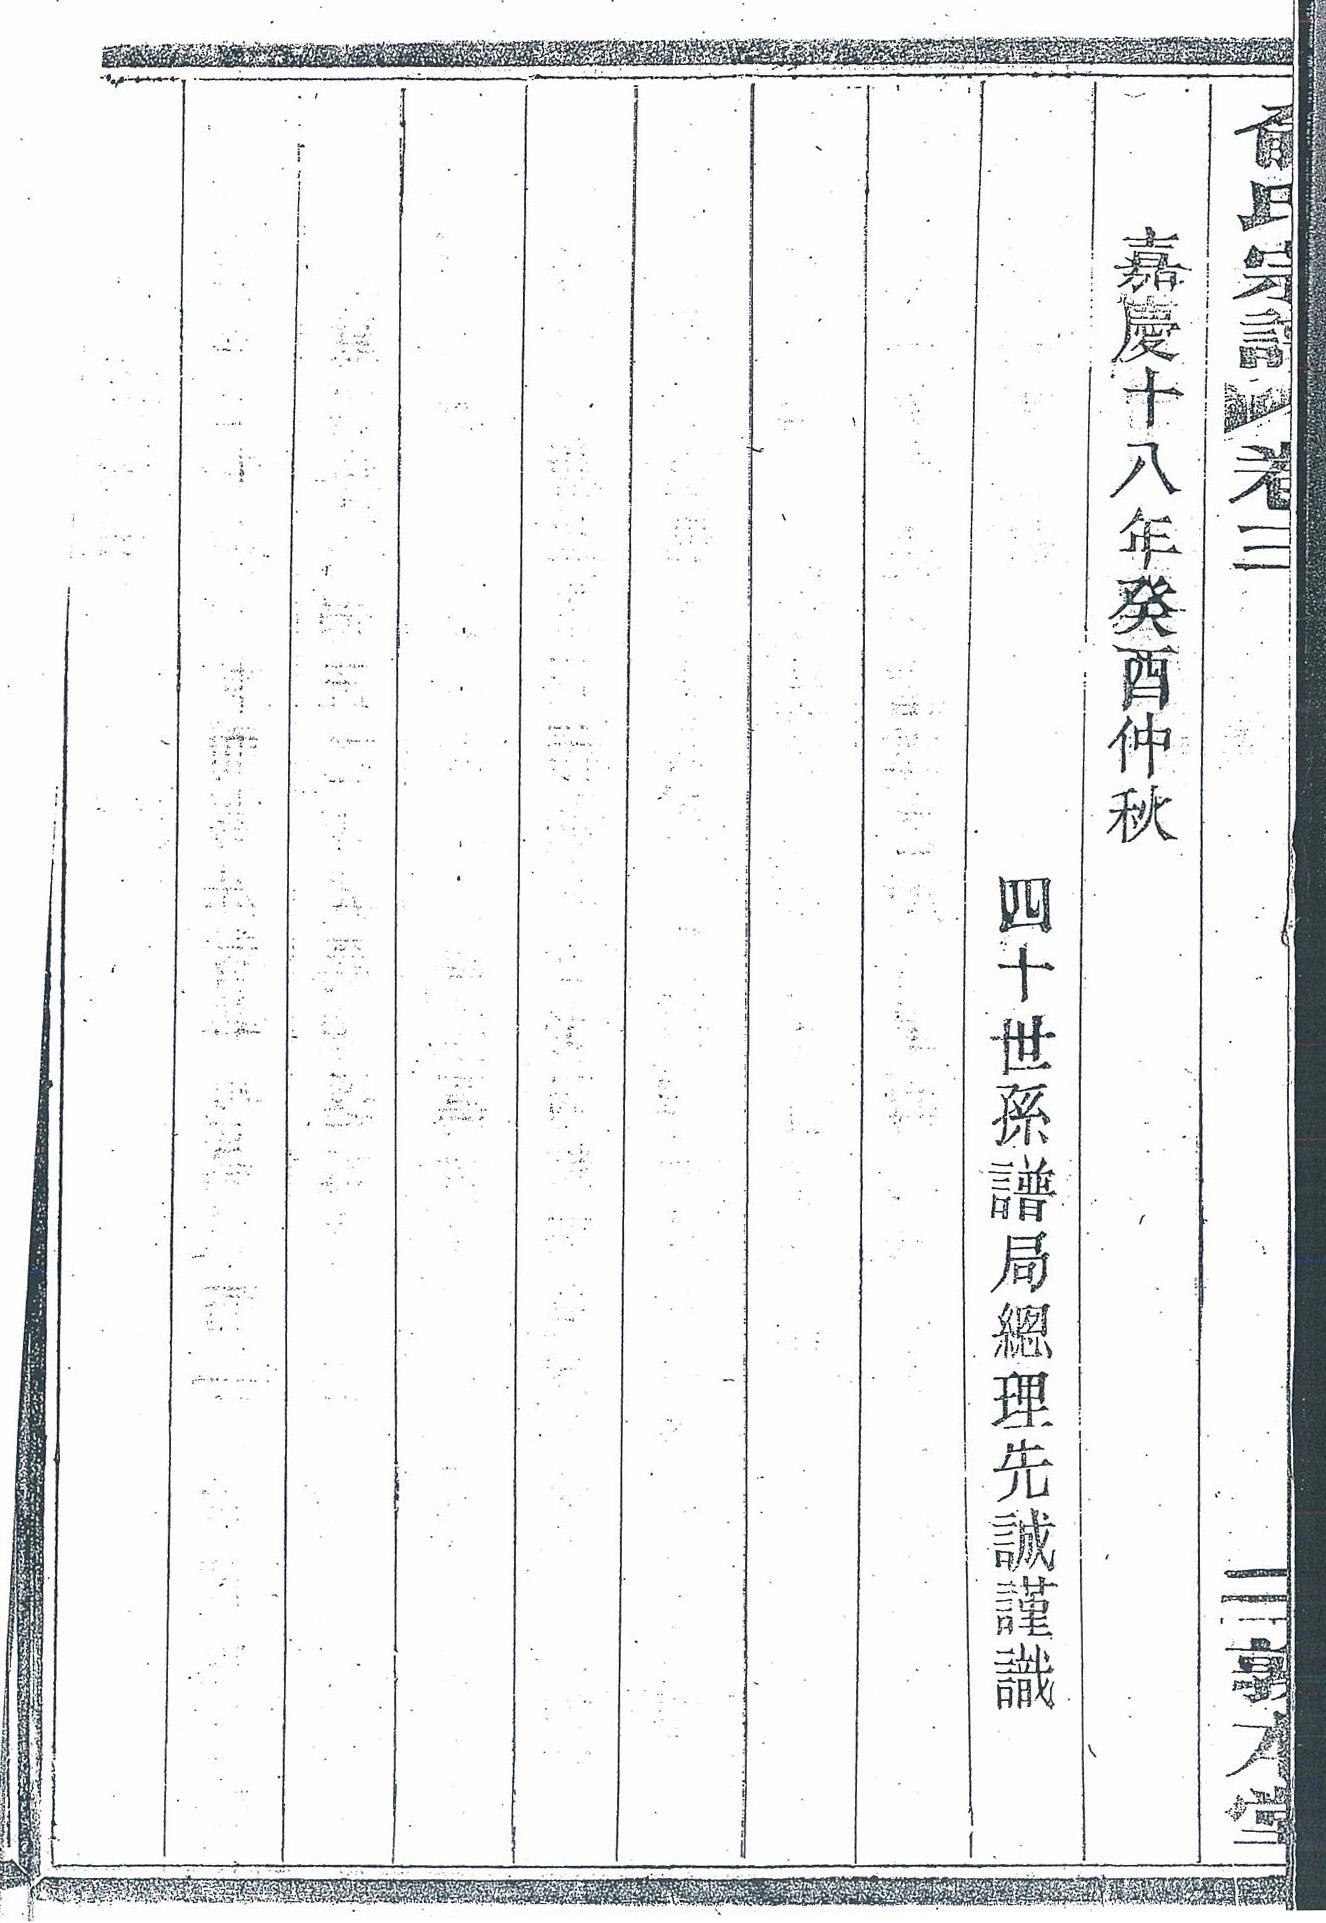 氏宗譜 卷三
三 敦本堂
嘉慶十八年癸酉仲秋
四十世孫譜局總理先誠謹識